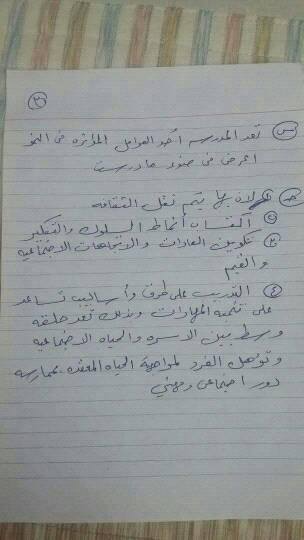 ٣
س تعد المدرسه أحد العوامل المؤثره فى النمو
اعرض فى ضوء ما درست
ج ١ لان بها يتم نقل الثقافه
٢ اكتساب أنماط السلوك والتفكير
٣ تكوين العادات والاتجاهات الاجتماعيه
والقيم
٤ التدريب على طرق وأساليب تساعد
على تنمية المهارات وبذلك تعد حلقه
وسط بين الاسره والحياه الاجتماعيه
وتؤهل الفرد لمواجهة الحياه المعقده بممارسه
دور اجتماعى ومهني